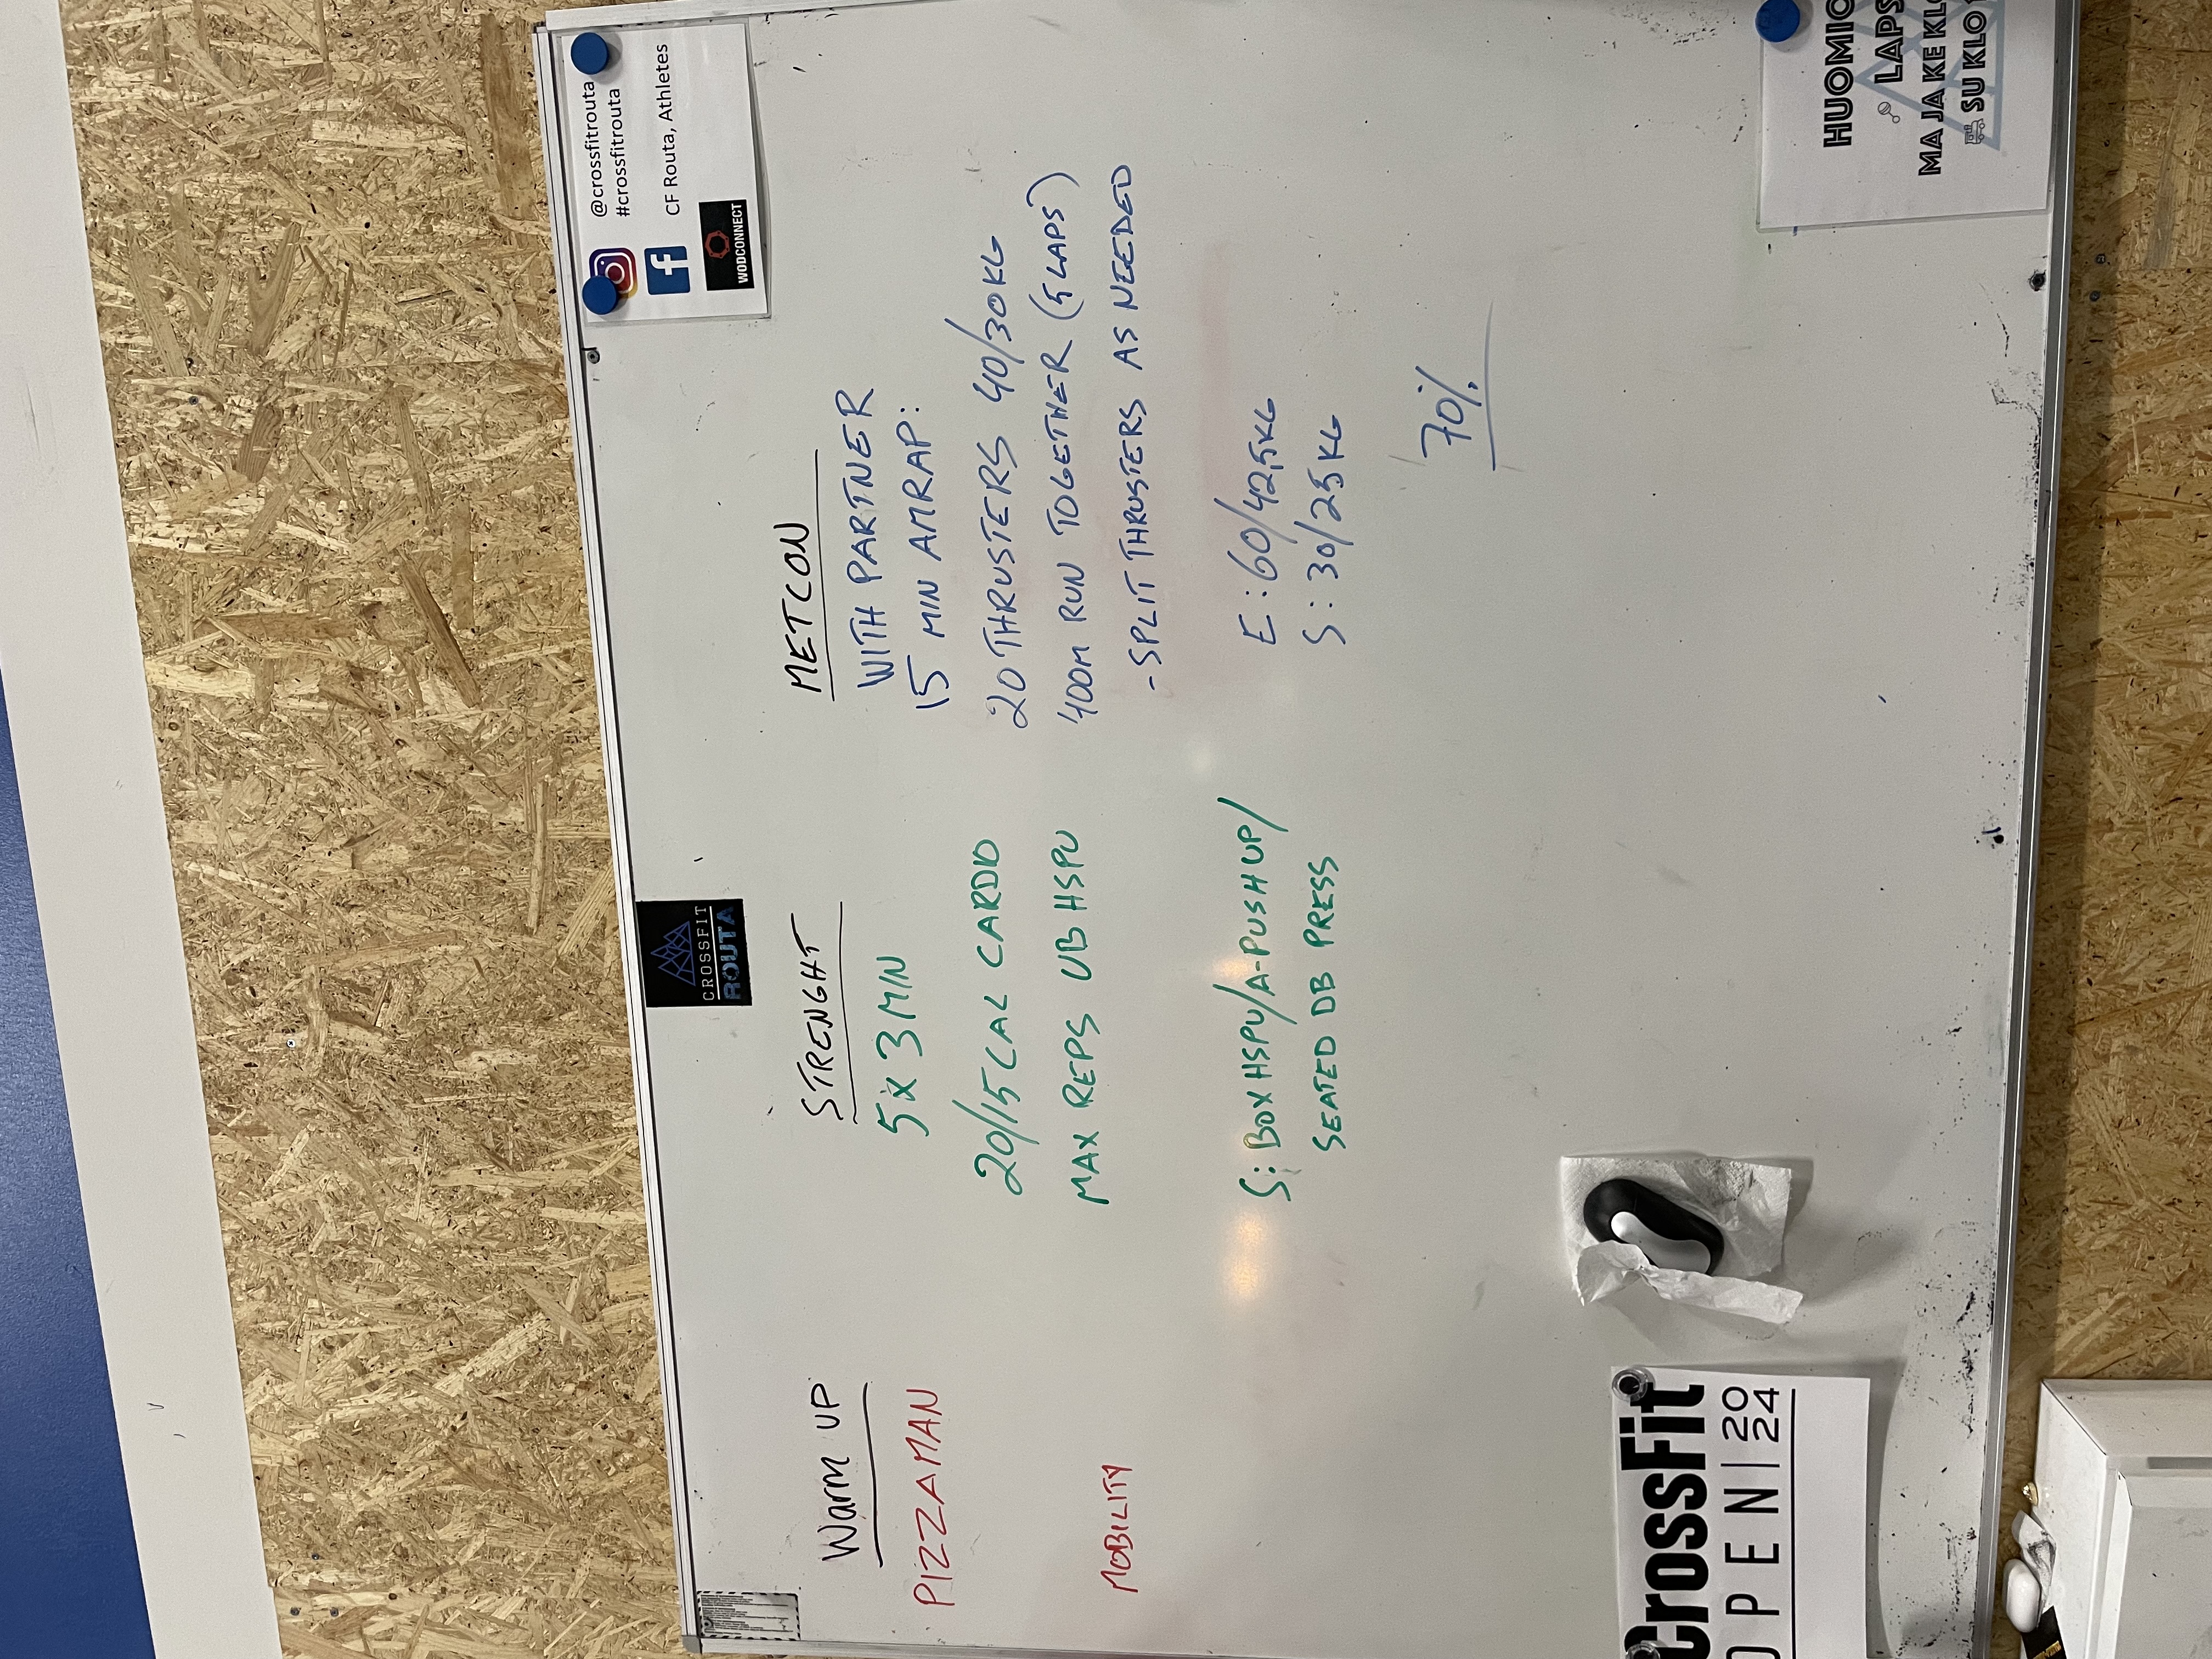 @crossfitrouta
#crossfitrouta
CF Routa, Athletes
WODCONNECT
CROSSFIT
ROUTA
Warm UP
PIZZAMAN
MOBILITY
STRENGHT
5 x 3 MIN
20/15 CAL CARDIO
MAX REPS UB HSPU
S: BOX HSPU/A-PUSH UP/
SEATED DB PRESS
METCON
WITH PARTNER
15 MIN AMRAP:
20 THRUSTERS 40/30KG
400M RUN TOGETHER (5 LAPS)
- SPLIT THRUSTERS AS NEEDED
E: 60/42,5KG
S: 30/25KG
70%
CrossFit
OPEN 20
24
HUOMIO
LAPS
MAJAKE KLO
SU KLO